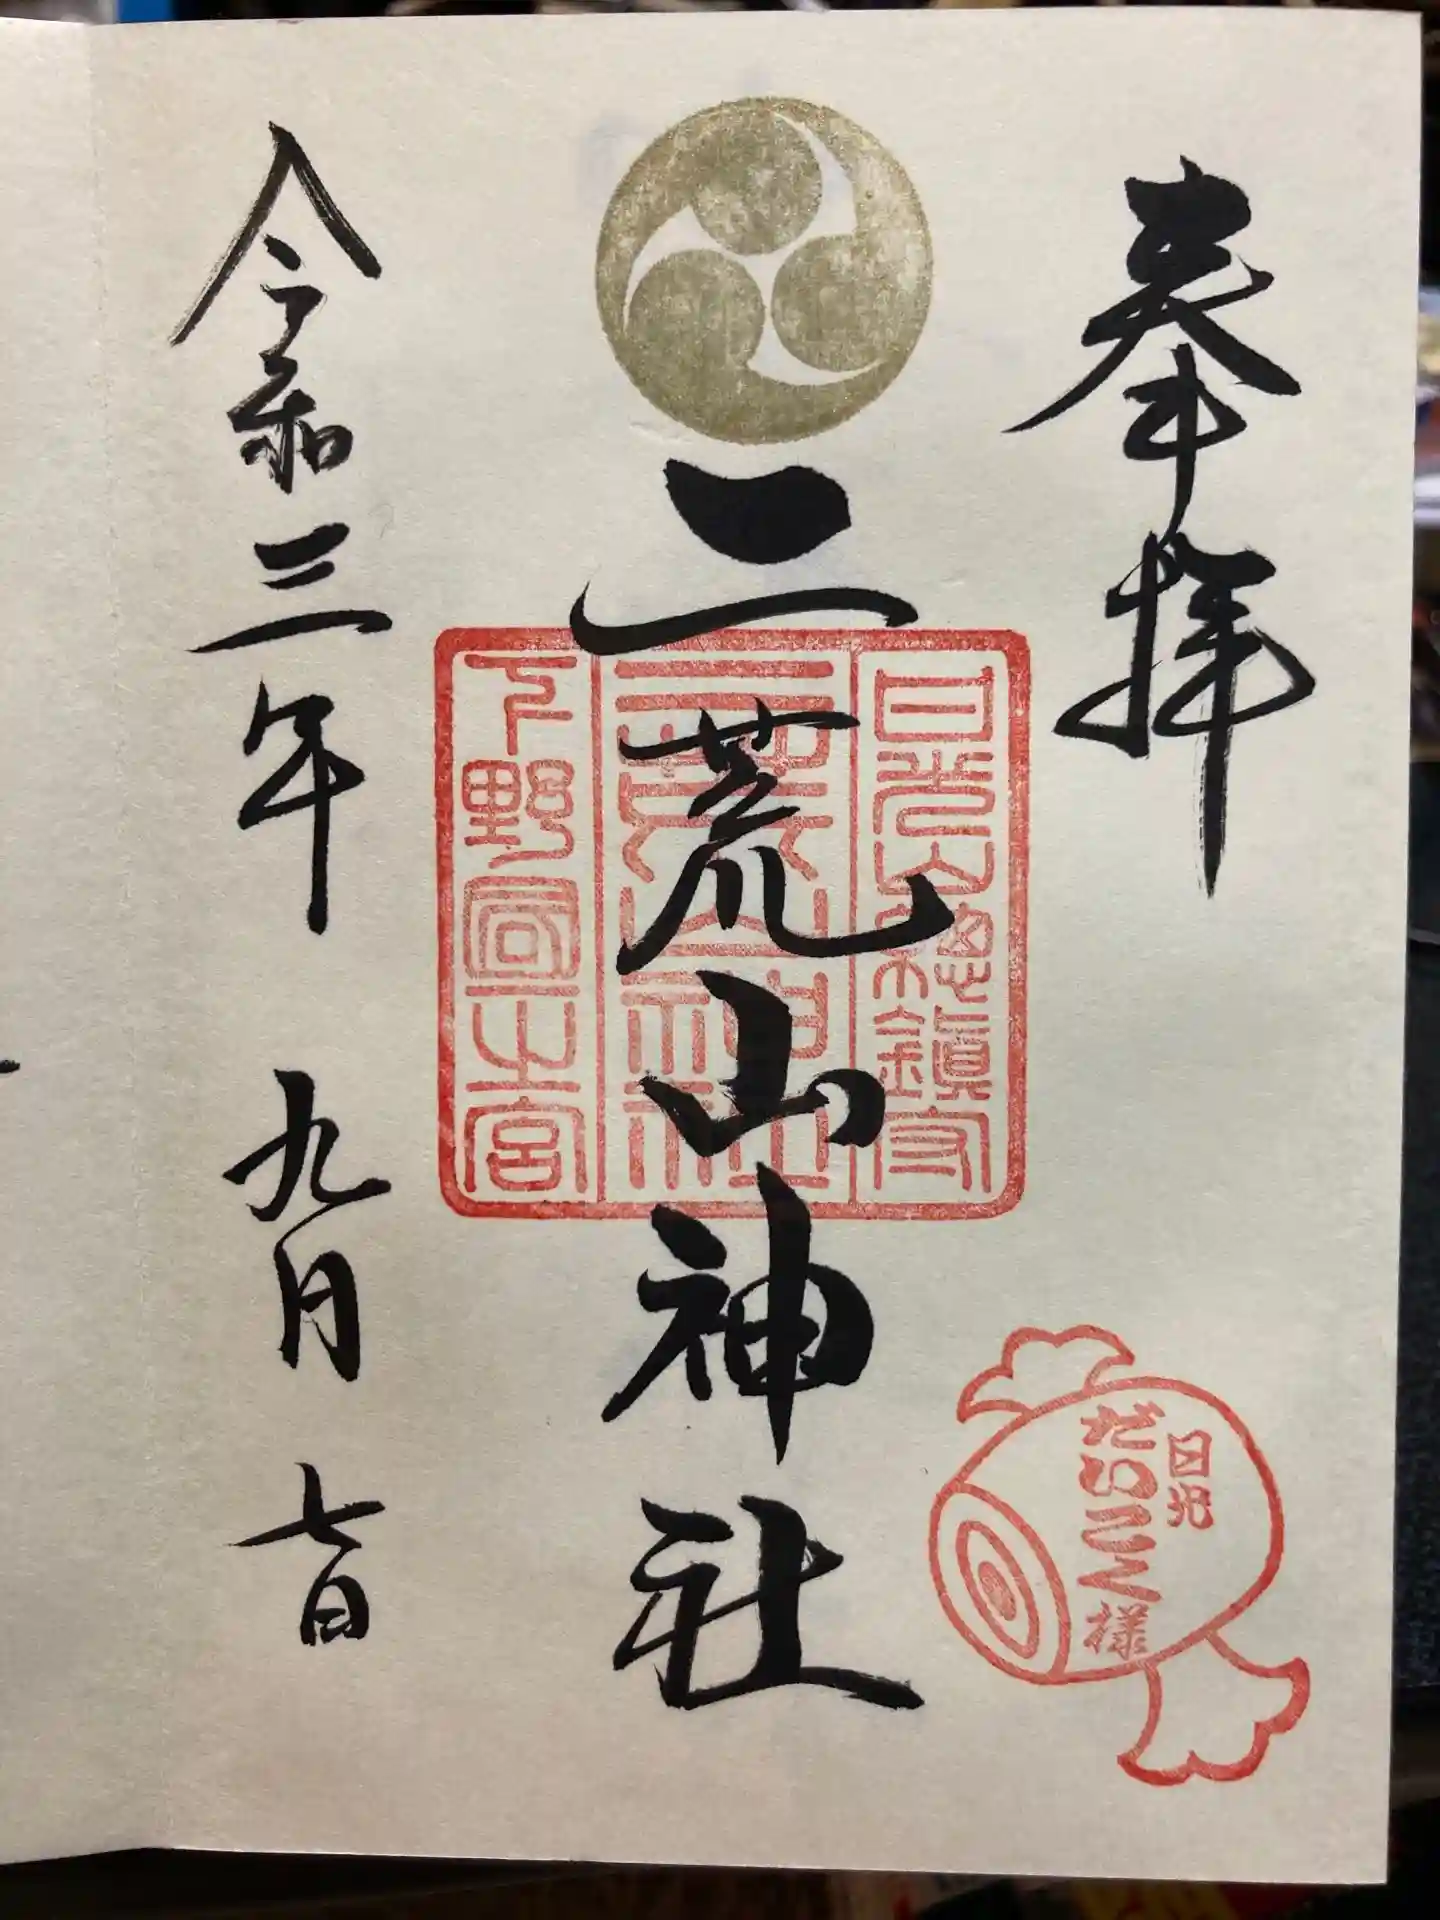 奉拝
日光
だいこく様
日光山総鎮守
二荒山神社
二荒山神社
下野国一之宮
令和三年 九月 七日